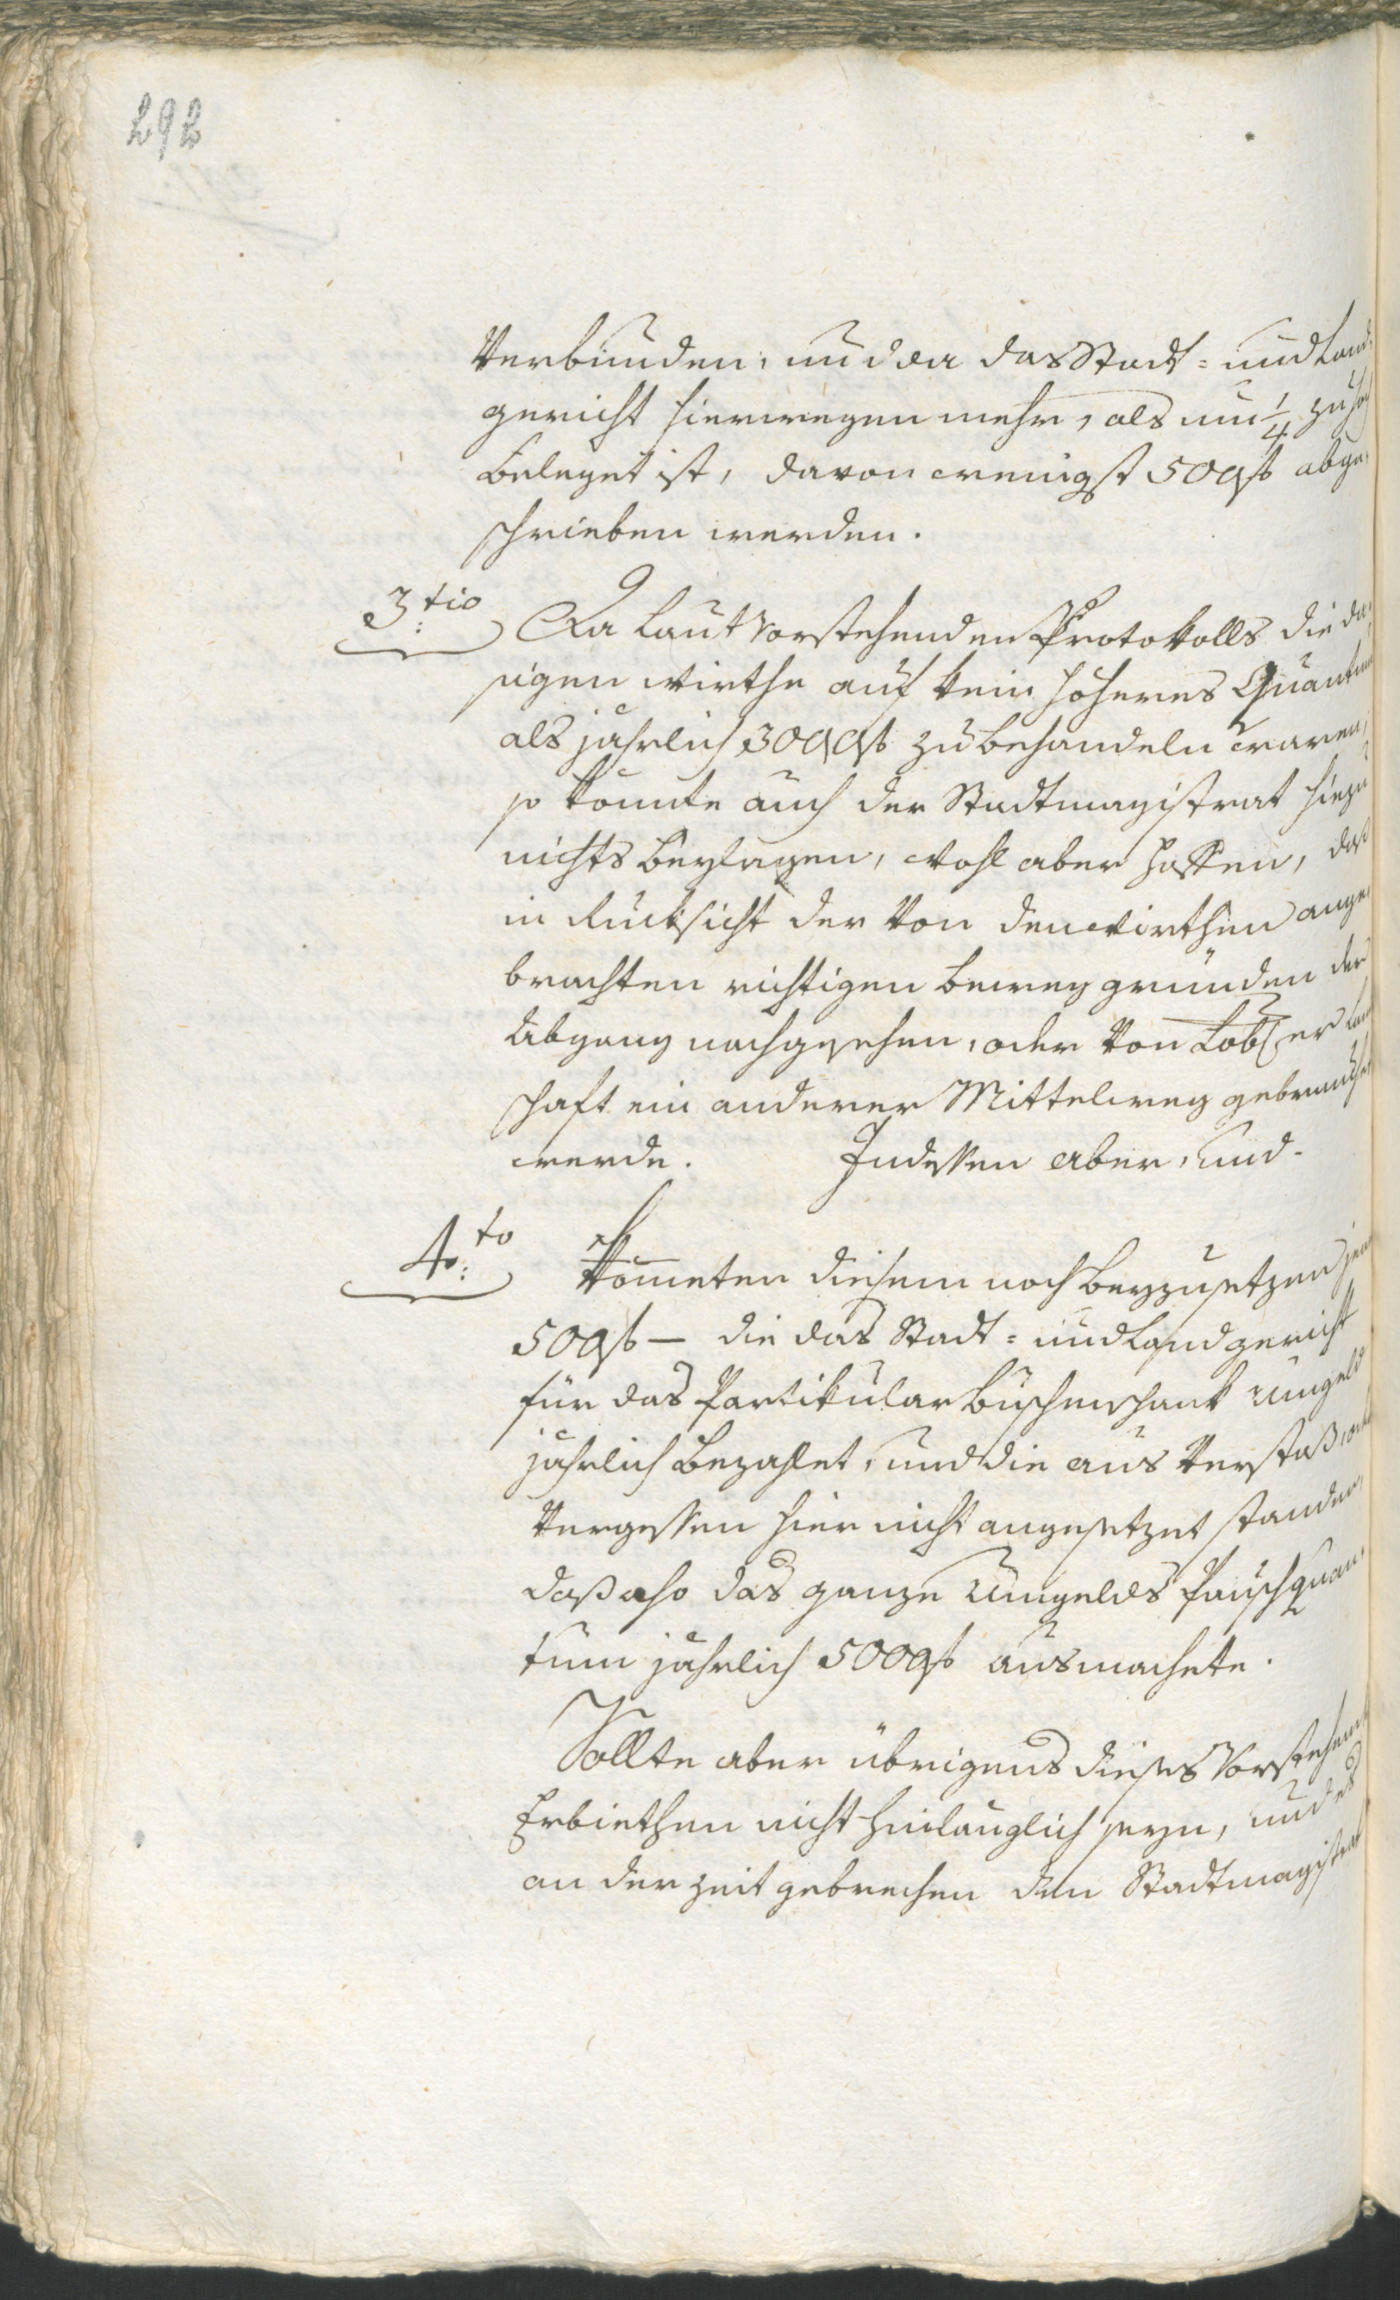 292
Verbunden, und da das Stadt= und Land=
gericht hierwegen mehr, als um 1/4 zu hoch
beleget ist, davon wenigst 50 fl abge=
schrieben werden.
3tio: Da laut vorstehenden Protokolls die da=
sigen Wirthe auf kein höheres Quantum
als jährlich 300 fl zu behandeln waren,
so konnte auch der Stadtmagistrat hiezu
nichts beylegen, wohl aber hoffen, daß
in Rücksicht der von den Wirthen ange=
brachten richtigen Beweggründen der
Abgang nachgesehen, oder von Löbler Land
schaft ein anderer Mittelweg gebrauchet
werde. Indessen aber, und
4to: Kommeten diesem noch beyzusetzen jene
50 fl — die das Stadt= und Landgericht
für das Partikular Buschenschank Umgeld
jährlich bezahlet, und die aus Verstoß oder
Vergessen hier nicht angesetzet standen,
daß also das ganze Umgelds Pauschquan=
tum jährlich 500 fl ausmachete.
Sollte aber übrigens dieses Vorstehende
Erbiethen nicht hinlänglich seyn, und es
an der Zeit gebrechen den Stadtmagistrat